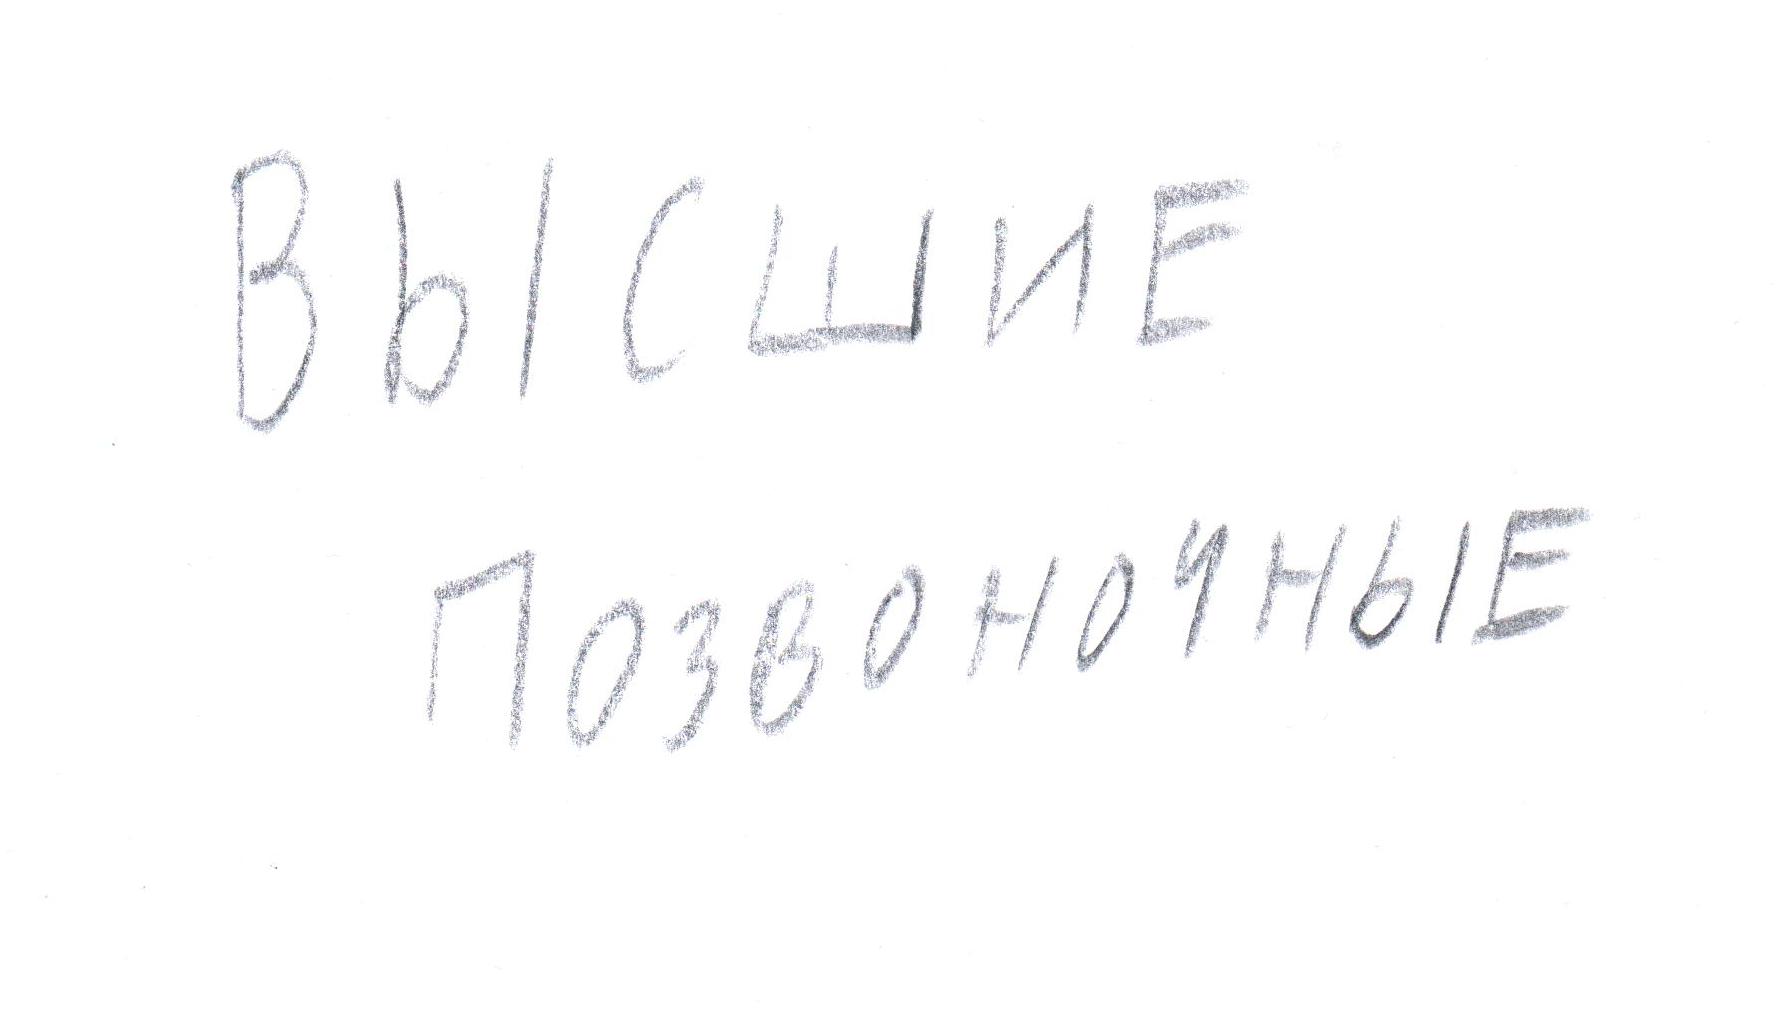 ВЫСШИЕ
ПОЗВОНОЧНЫЕ